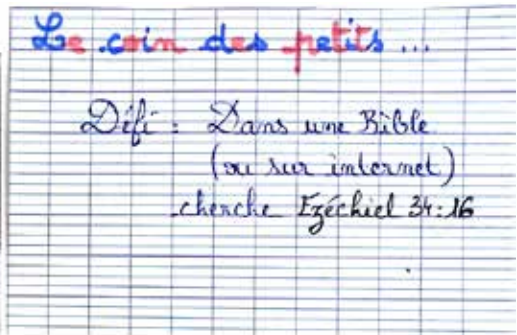 Le coin des petits ...
Défi : Dans une Bible
(ou sur internet)
cherche Ezéchiel 34:16